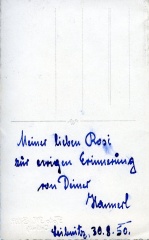 Meiner lieben Rosi
zur ewigen Erinnerung
von Deiner
Hannerl
30.8.50.